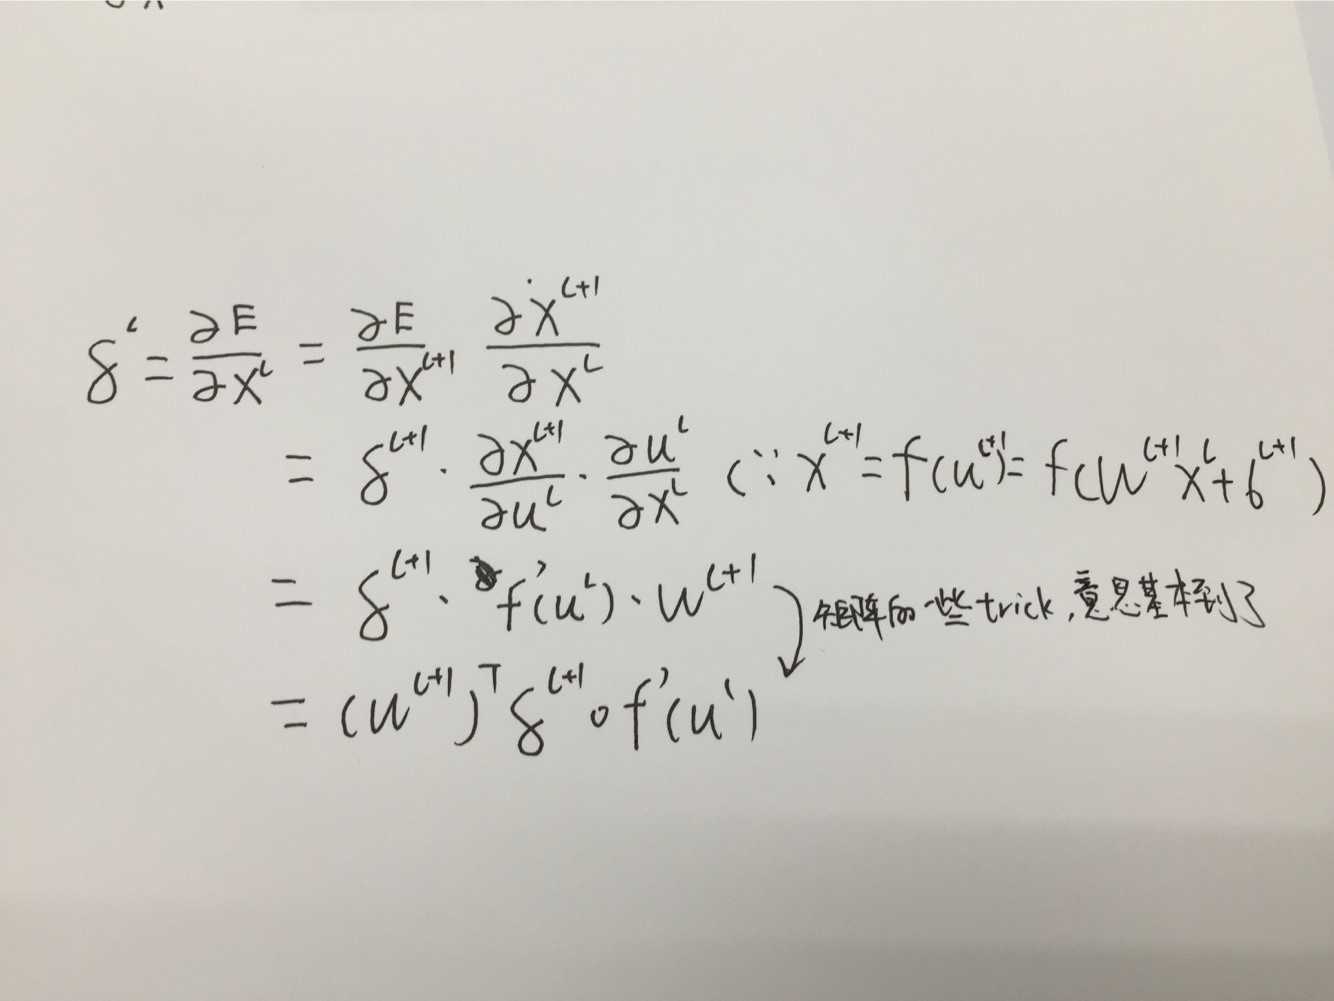 δ^L = ∂E/∂X^L = ∂E/∂X^{L+1} ∂X^{L+1}/∂X^L
= δ^{L+1} · ∂X^{L+1}/∂u^L · ∂u^L/∂X^L (∵ X^{L+1} = f(u^{L+1}) = f(W^{L+1}X^L + b^{L+1})
= δ^{L+1} · f'(u^L) · W^{L+1} 矩阵的一些trick,意思基本到了
= (W^{L+1})^T δ^{L+1} ∘ f'(u^L)